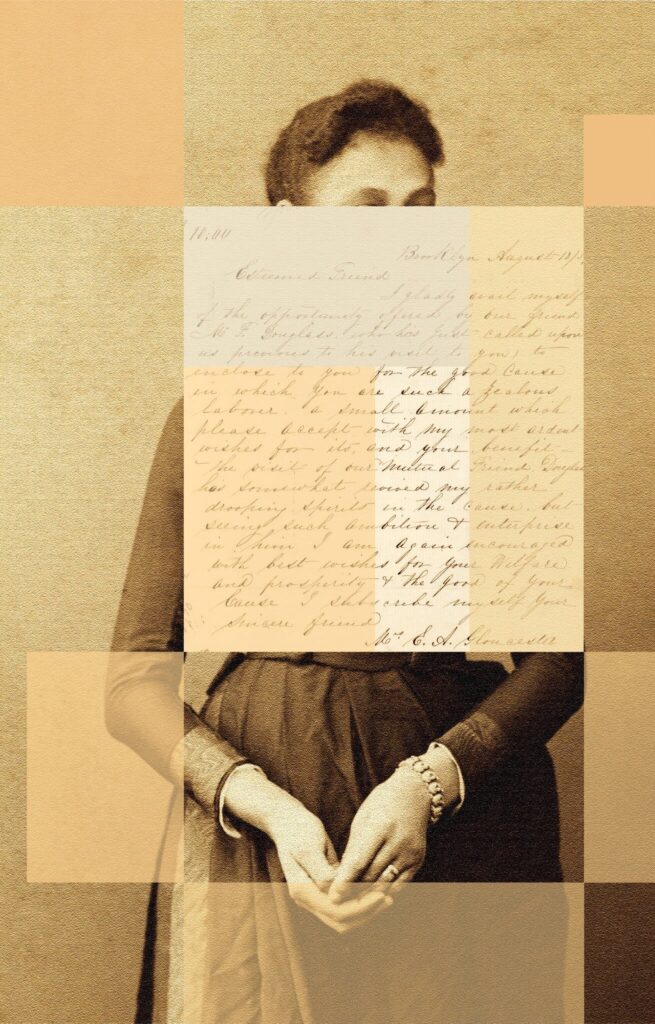 10:00
Brooklyn August 18/5
Esteemed Friend
I gladly avail myself
of the opportunity offered by our friend
Mr F. Douglass, who has just called upon
us previous to his visit to you, to
enclose to you for the good cause
in which you are such a zealous
laborer. a small amount which
please accept with my most ardent
wishes for its, and your benefit—
The visit of our Mutual Friend Douglas
has somewhat revived my rather
drooping spirits in the cause. but
seeing such ambition & enterprise
in him I am again encouraged
with best wishes for your Welfare
and prosperity & the good of your
Cause I subscribe myself Your
sincere friend
Mrs E. A. Gloucester